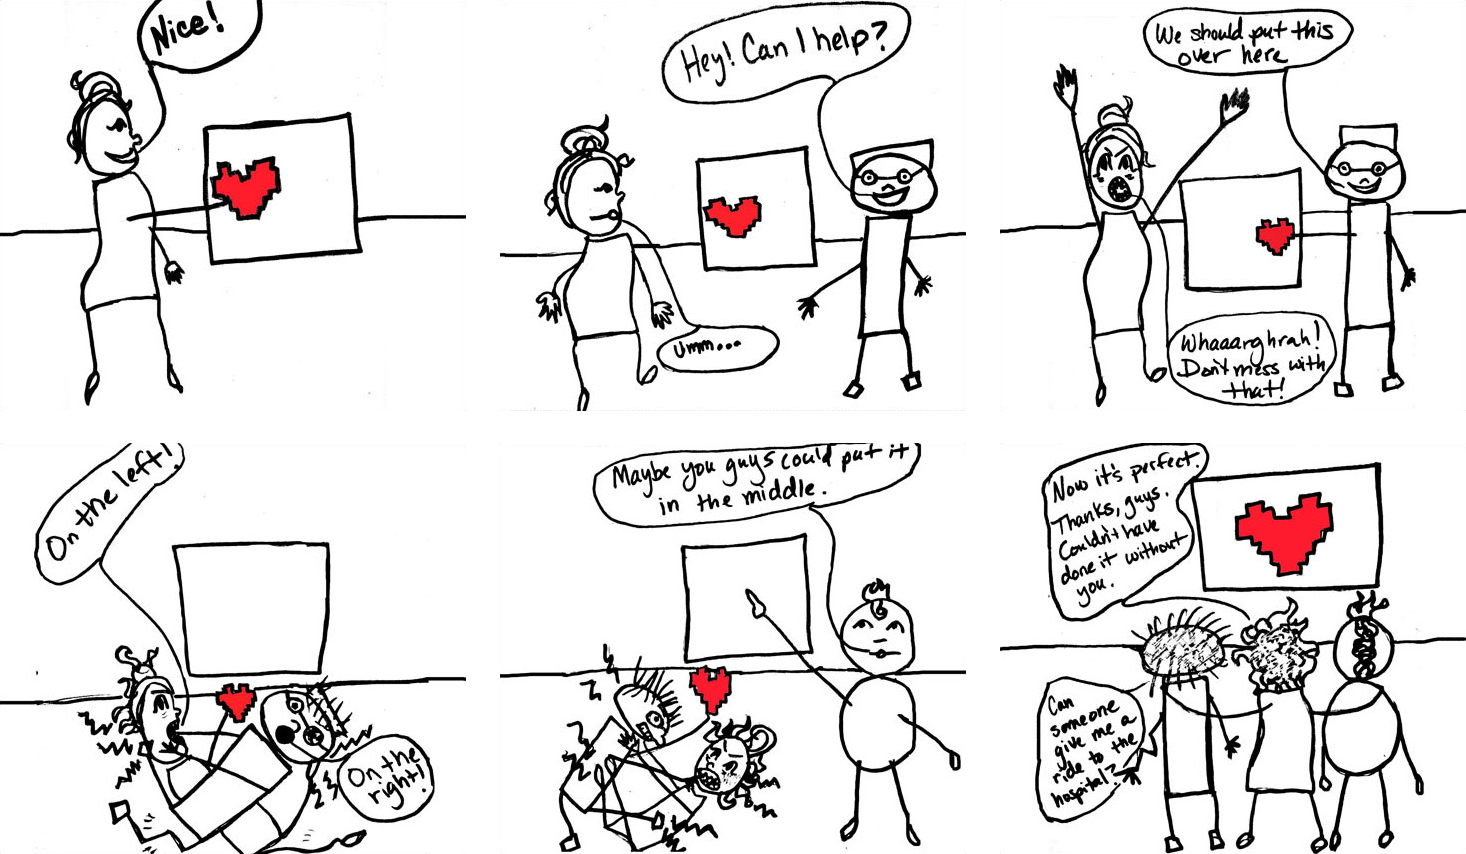 Nice!
Hey! Can I help?
Umm...
We should put this
over here
Whaaarghrah!
Don't mess with
that!
On the left!
On the
right!
Maybe you guys could put it
in the middle.
Now it's perfect.
Thanks, guys.
Couldn't have
done it without
you.
Can
someone
give me a
ride to the
hospital?